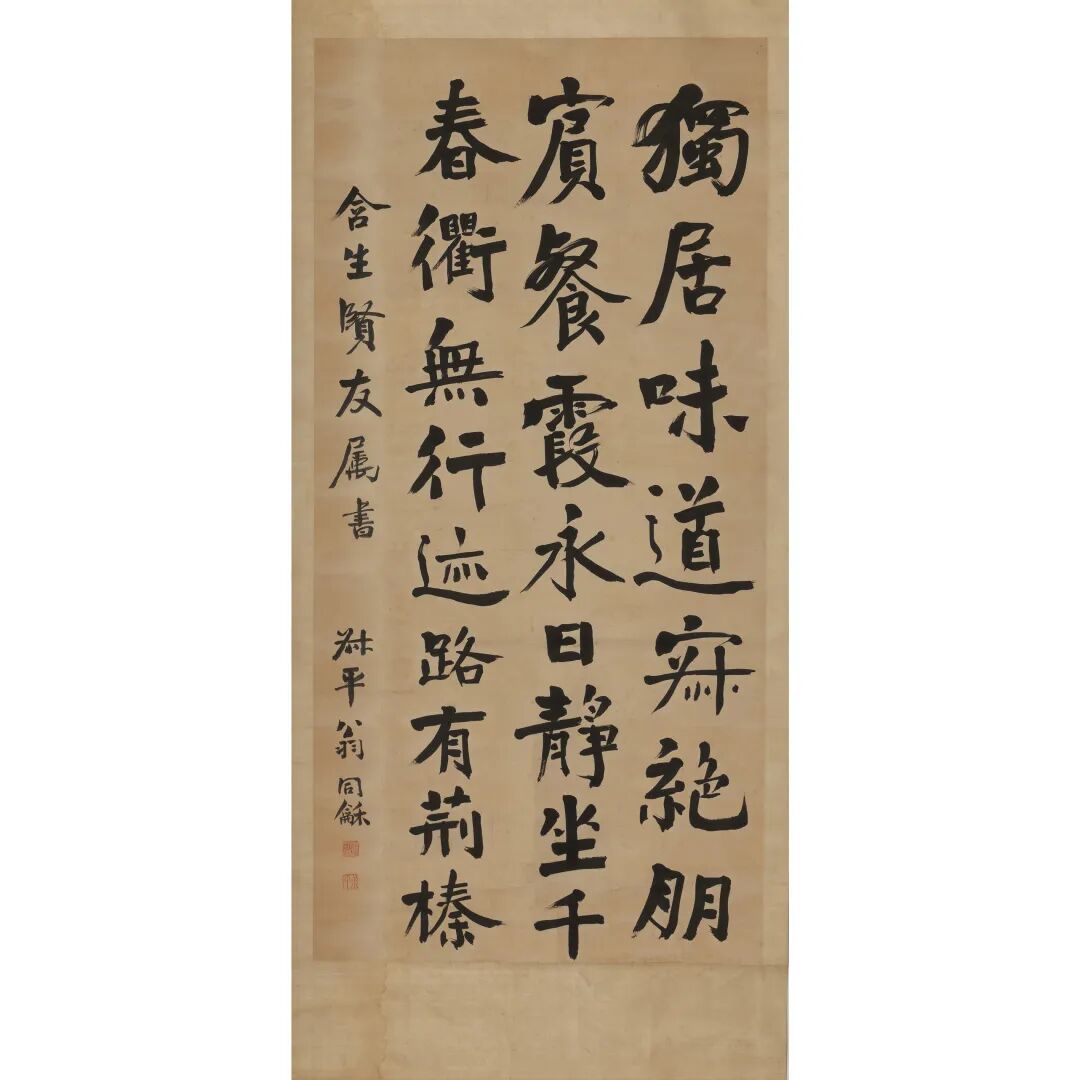 獨居味道寂絕朋
賓餐霞永日靜坐千
春衢無行迹路有荊榛
含生賢友属書
叔平翁同龢